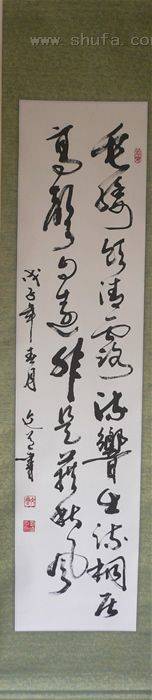 www.shufa.com
垂緌饮清露流響出疏桐居
高声自远非是藉秋风
戊子年春月